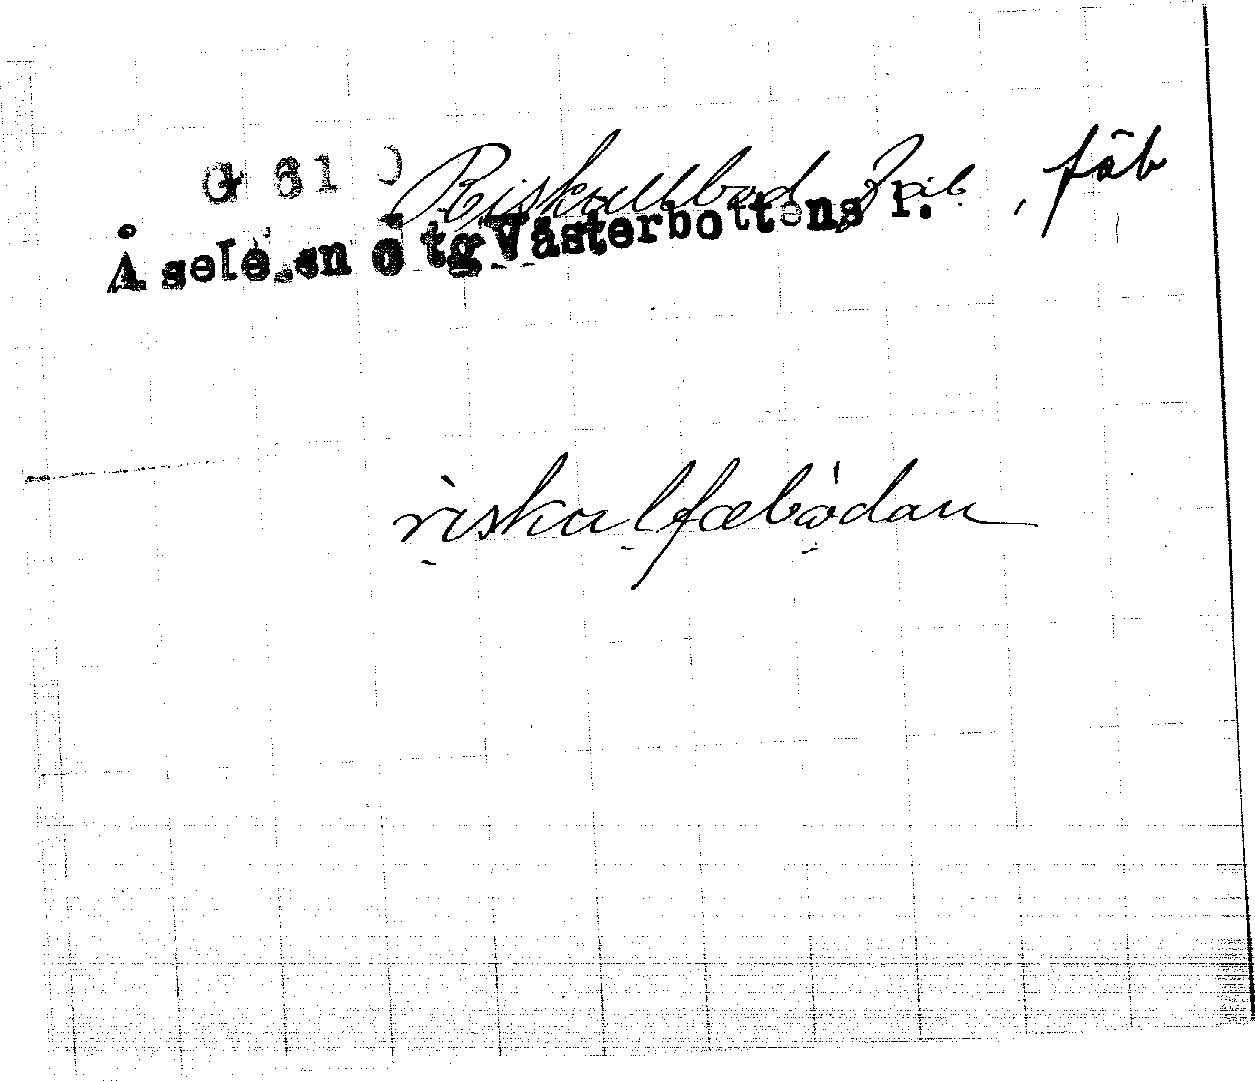 Riskullbod fäb. , fäb
Åsele sn o tg Västerbottens l.
riskalfæbödan